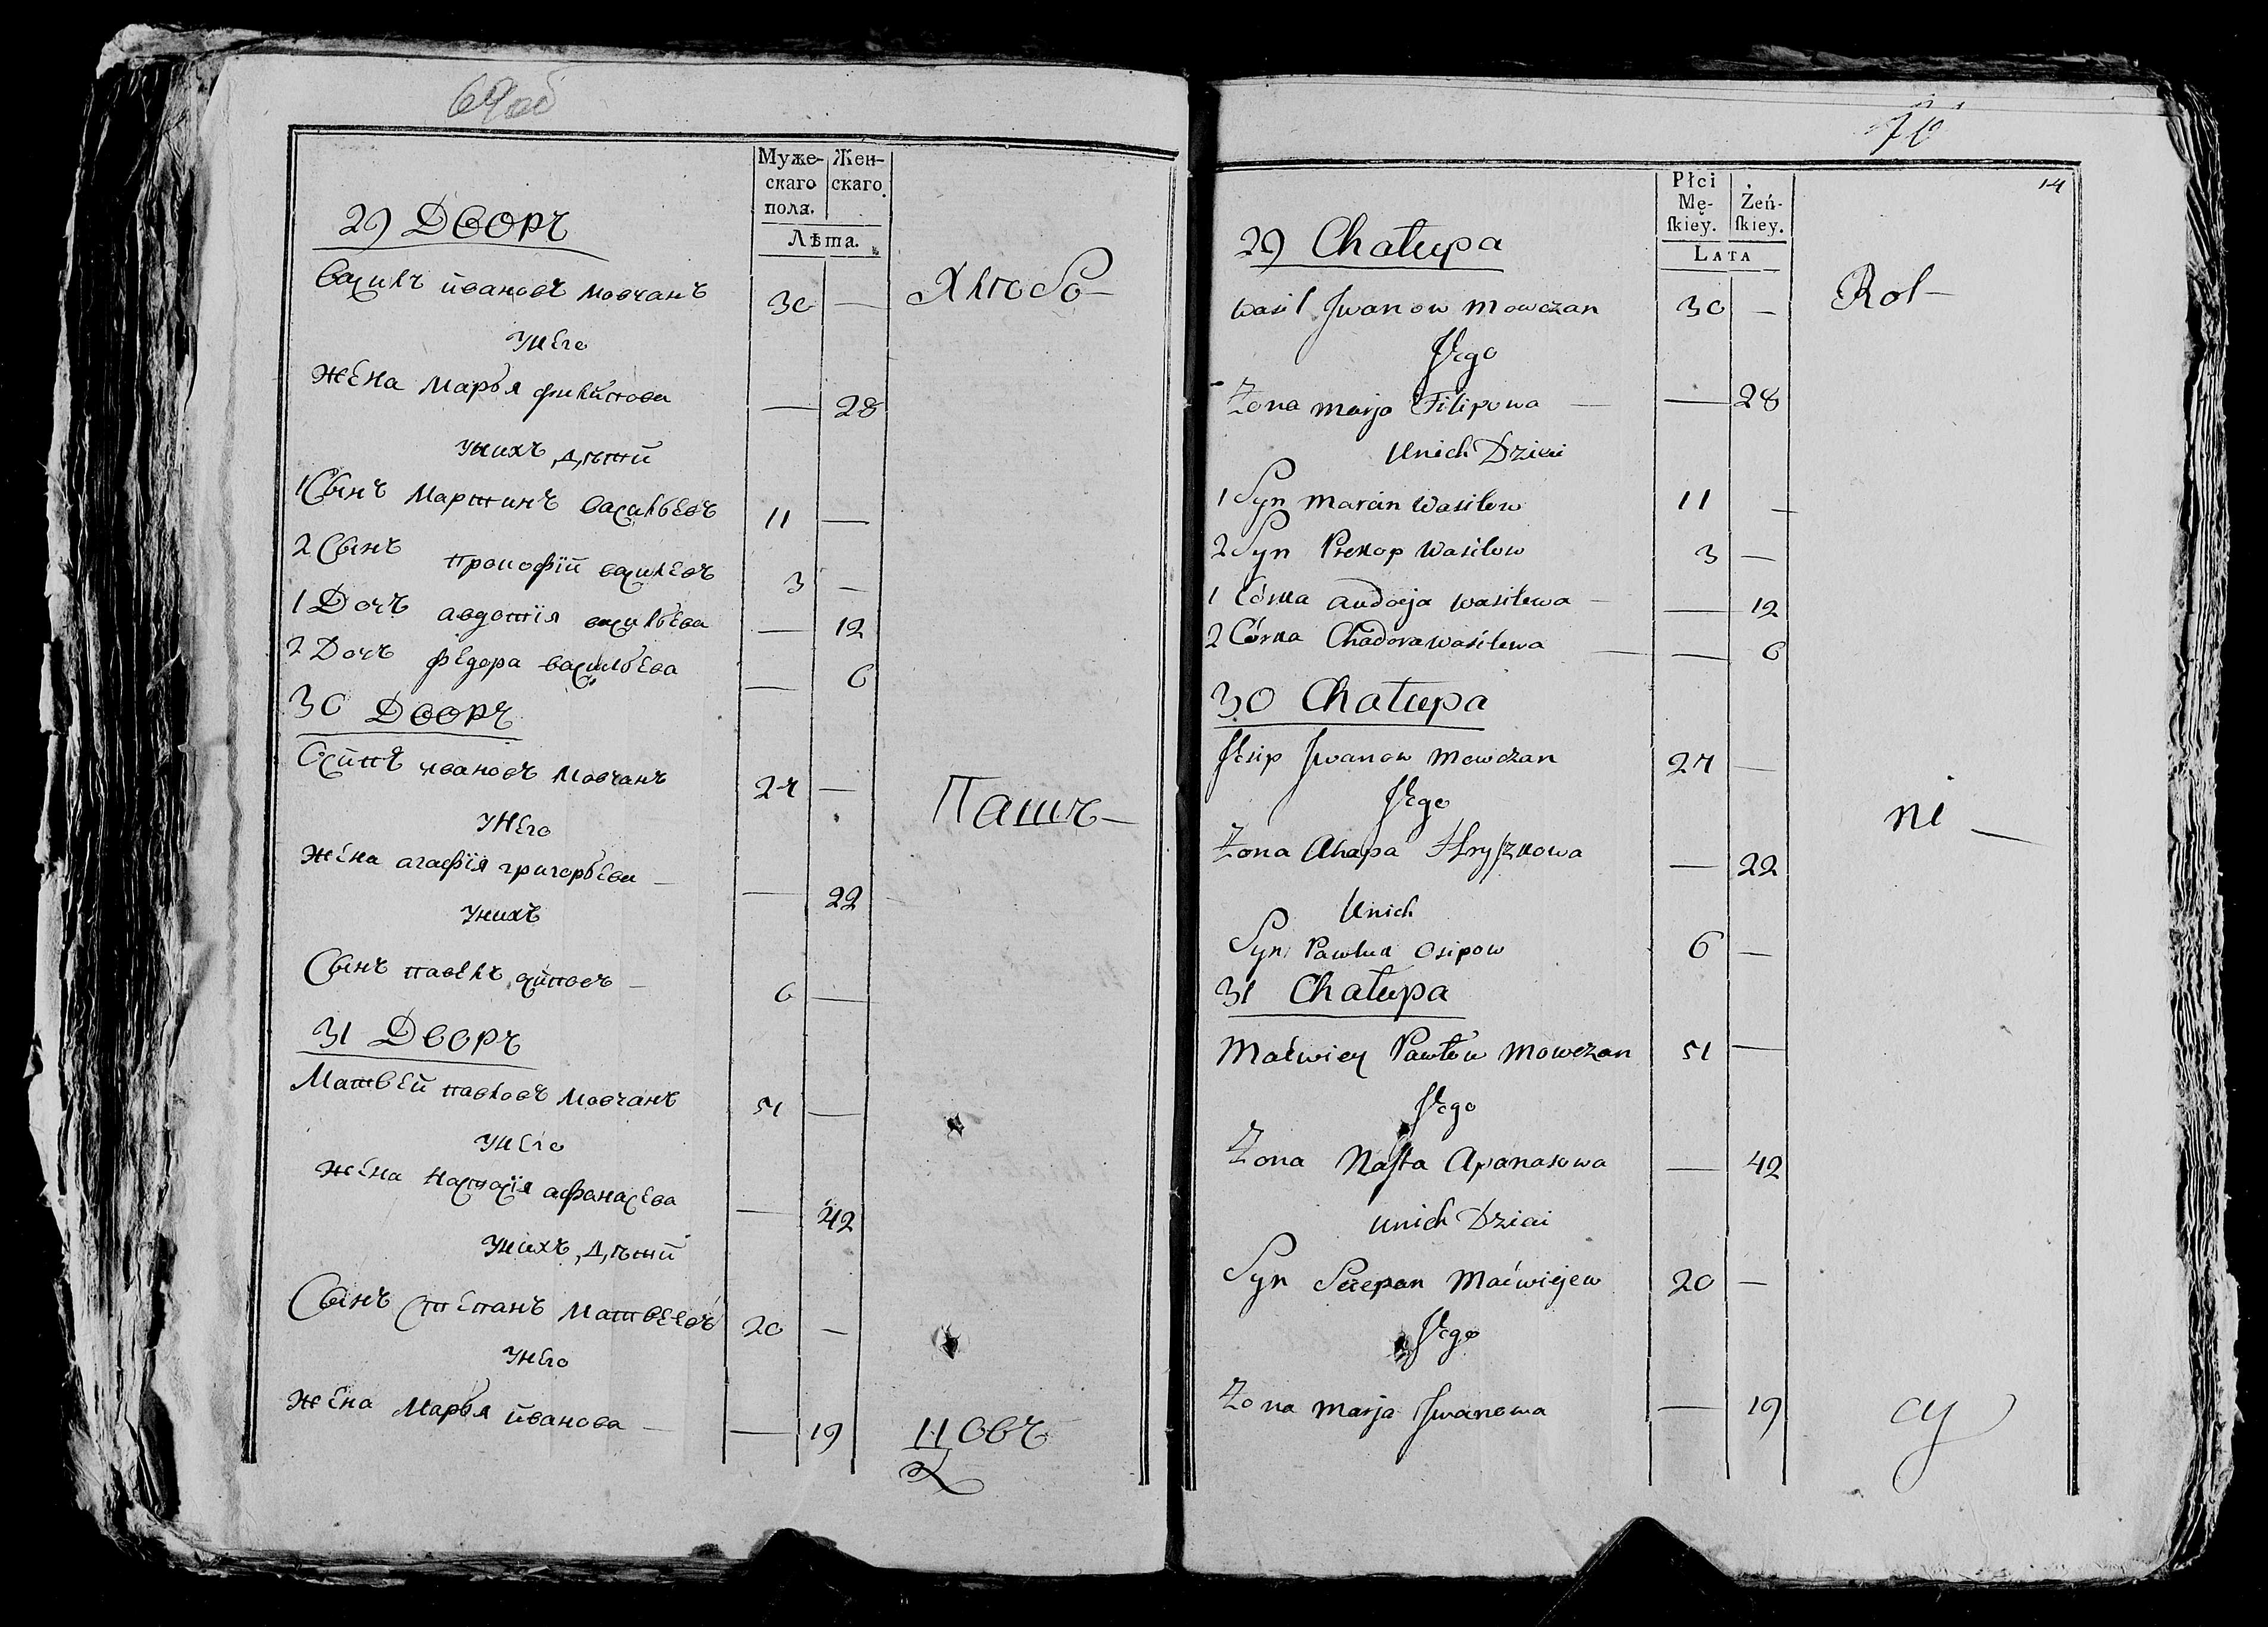 69об
Муже-
скаго
пола.
Жен-
скаго.
Лѣта.
29 Дворъ
Василъ ивановъ Мовчанъ 30 —
Хлѣбо-
Унего
Жена Марья филипова — 28
Унихъ дѣтй
1 Сынъ Мартинъ васильевъ 11 —
2 Сынъ прокофiй василевъ 3 —
1 Дочъ авдотiя васильева — 12
2 Дочъ федора васильева — 6
30 Дворъ
Осипъ ивановъ Мовчанъ 24 —
Пашъ-
Унего
Жена агафiя григорьева — 22
Унихъ
Сынъ павелъ осиповъ 6 —
31 Дворъ
Матвей павловъ Мовчанъ 51 —
Унего
Жена настасiя афанасева — 42
Унихъ дѣтй
Сынъ степанъ Матвеевъ 20 —
Унего
Жена Марья йванова — 19
цовъ
70
14
Płci
Mę-
ſkiey.
Żeń-
ſkiey.
LATA
29 Chałupa
Wasil Jwanow Mowczan 30 —
Rol-
Jego
Żona Marja Filipowa — 28
Unich Dzieci
1 Syn Marcin Wasilew 11 —
2 Syn Prokop Wasilow 3 —
1 Córka Audocja Wasilewa — 12
2 Córka Chadora Wasilewa — 6
30 Chałupa
Josip Jwanow Mowczan 24 —
ni —
Jego
Żona Ahapa Hryſzkowa — 22
Unich
Syn Pawluk Osipow 6 —
31 Chałupa
Maćwiey Pawłow Mowczan 51 —
Jego
Żona Naſta Apanasowa — 42
unich Dzieci
Syn Sciepan Maćwiejew 20 —
Jego
Żona Marja Jwanowa — 19
cy